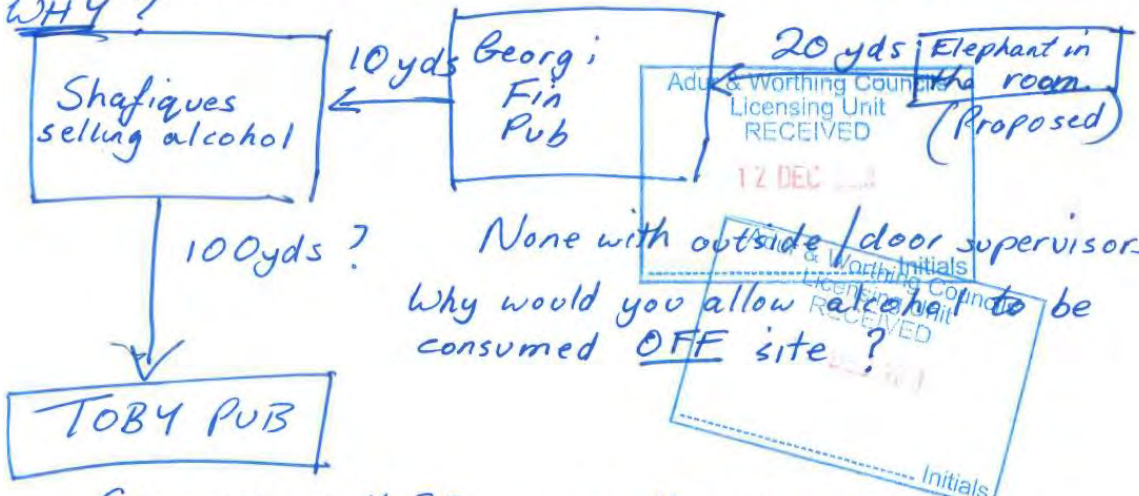 WHY?
Shafiques
selling alcohol
10 yds
Georgi
Fin
Pub
20 yds
Elephant in
the room
(Proposed)
Adur & Worthing Councils
Licensing Unit
RECEIVED
12 DEC
Initials
100yds ?
None with outside / door supervisors
Why would you allow alcohol to be
consumed OFF site ?
Adur & Worthing Councils
Licensing Unit
RECEIVED
Initials
TOBY PUB